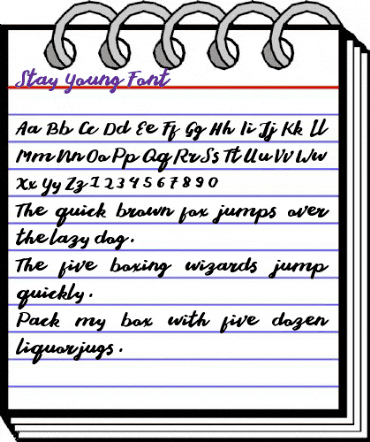 Stay Young Font
Aa Bb Cc Dd Ee Ff Gg Hh Ii Jj Kk Ll
Mm Nn Oo Pp Qq Rr Ss Tt Uu Vv Ww
Xx Yy Zz 1 2 3 4 5 6 7 8 9 0
The quick brown fox jumps over
the lazy dog.
The five boxing wizards jump
quickly.
Pack my box with five dozen
liquor jugs.